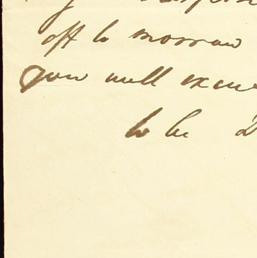 off to morrow
you will excu
to be